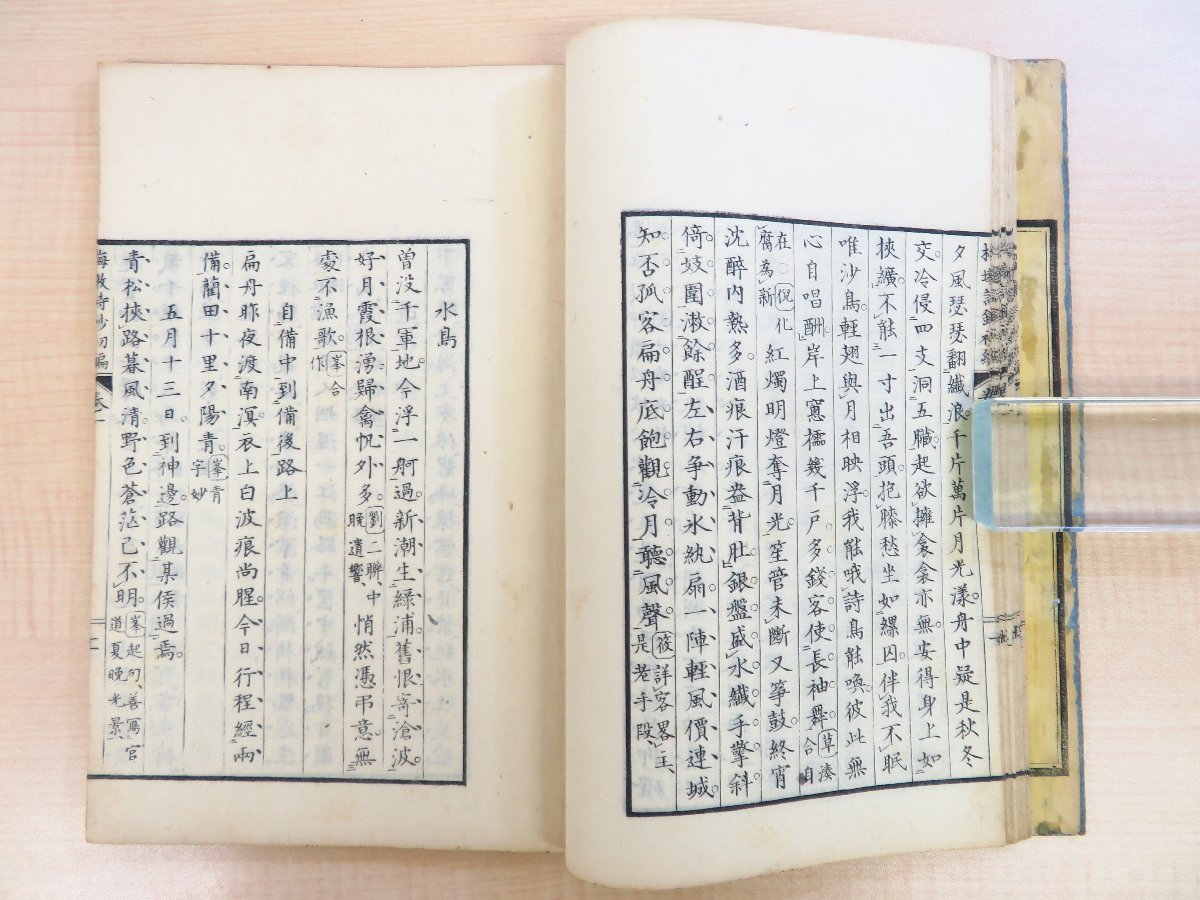 夕風瑟瑟翻纖浪。千片萬片月光漾。舟中疑是秋冬
交。冷侵四支洞五臟。起欲擁衾衾亦無。安得身上如
挾纊。不能一寸出吾頭。抱膝愁坐如縲囚。伴我不眠
唯沙鳥。輕翅與月相映浮。我能哦詩鳥能喚。彼此無
心自唱酬。岸上窻櫺幾千戶。多錢客使長袖舞。草湊合自
在。倪化腐為新紅燭明燈奪月光。笙管未斷又箏鼓。終宵
沈醉內熱多。酒痕汗痕盎背肚。銀盤盛水纖手擎。斜
倚妓圍漱餘酲。左右爭動氷紈扇。一陣輕風價連城。
知否孤客扁舟底。飽觀冷月聽風聲。筱詳客畧主、是老手段
水島
曽没千軍地。今浮一舸過。新潮生綠浦。舊恨寄滄波。
好月霞根湧。歸禽帆外多。劉二聯、中晚遺響悄然憑弔意。無
處不漁歌。峯合作
自備中到備後路上
扁舟昨夜渡南溟。衣上白波痕尚腥。今日行程經兩
備。藺田十里夕陽青。峯青字妙
五月十三日。到神邊路觀某侯過焉。
青松挾路暮風清。野色蒼茫已不明。峯起句、善寫官道夏晚光景
詩鈔初編 卷一